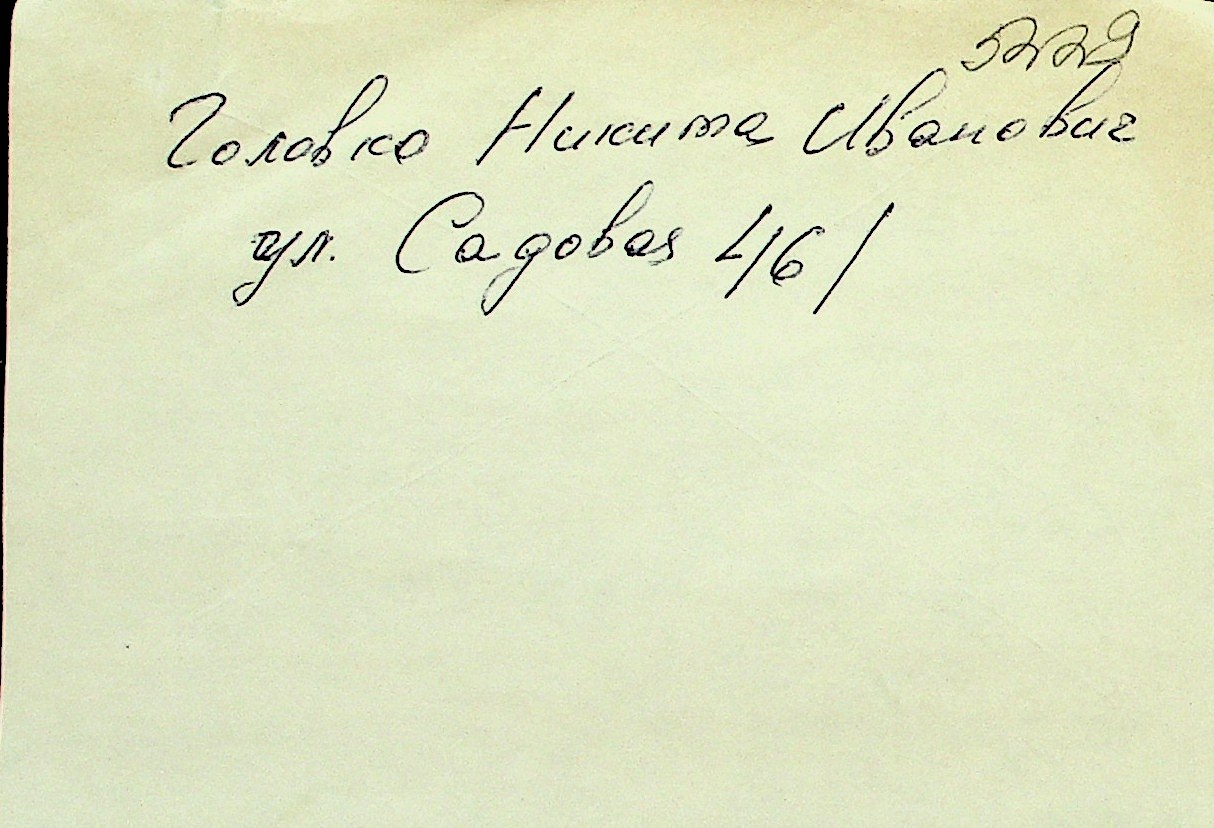 5229
Головко Никита Иванович
ул. Садовая 46/